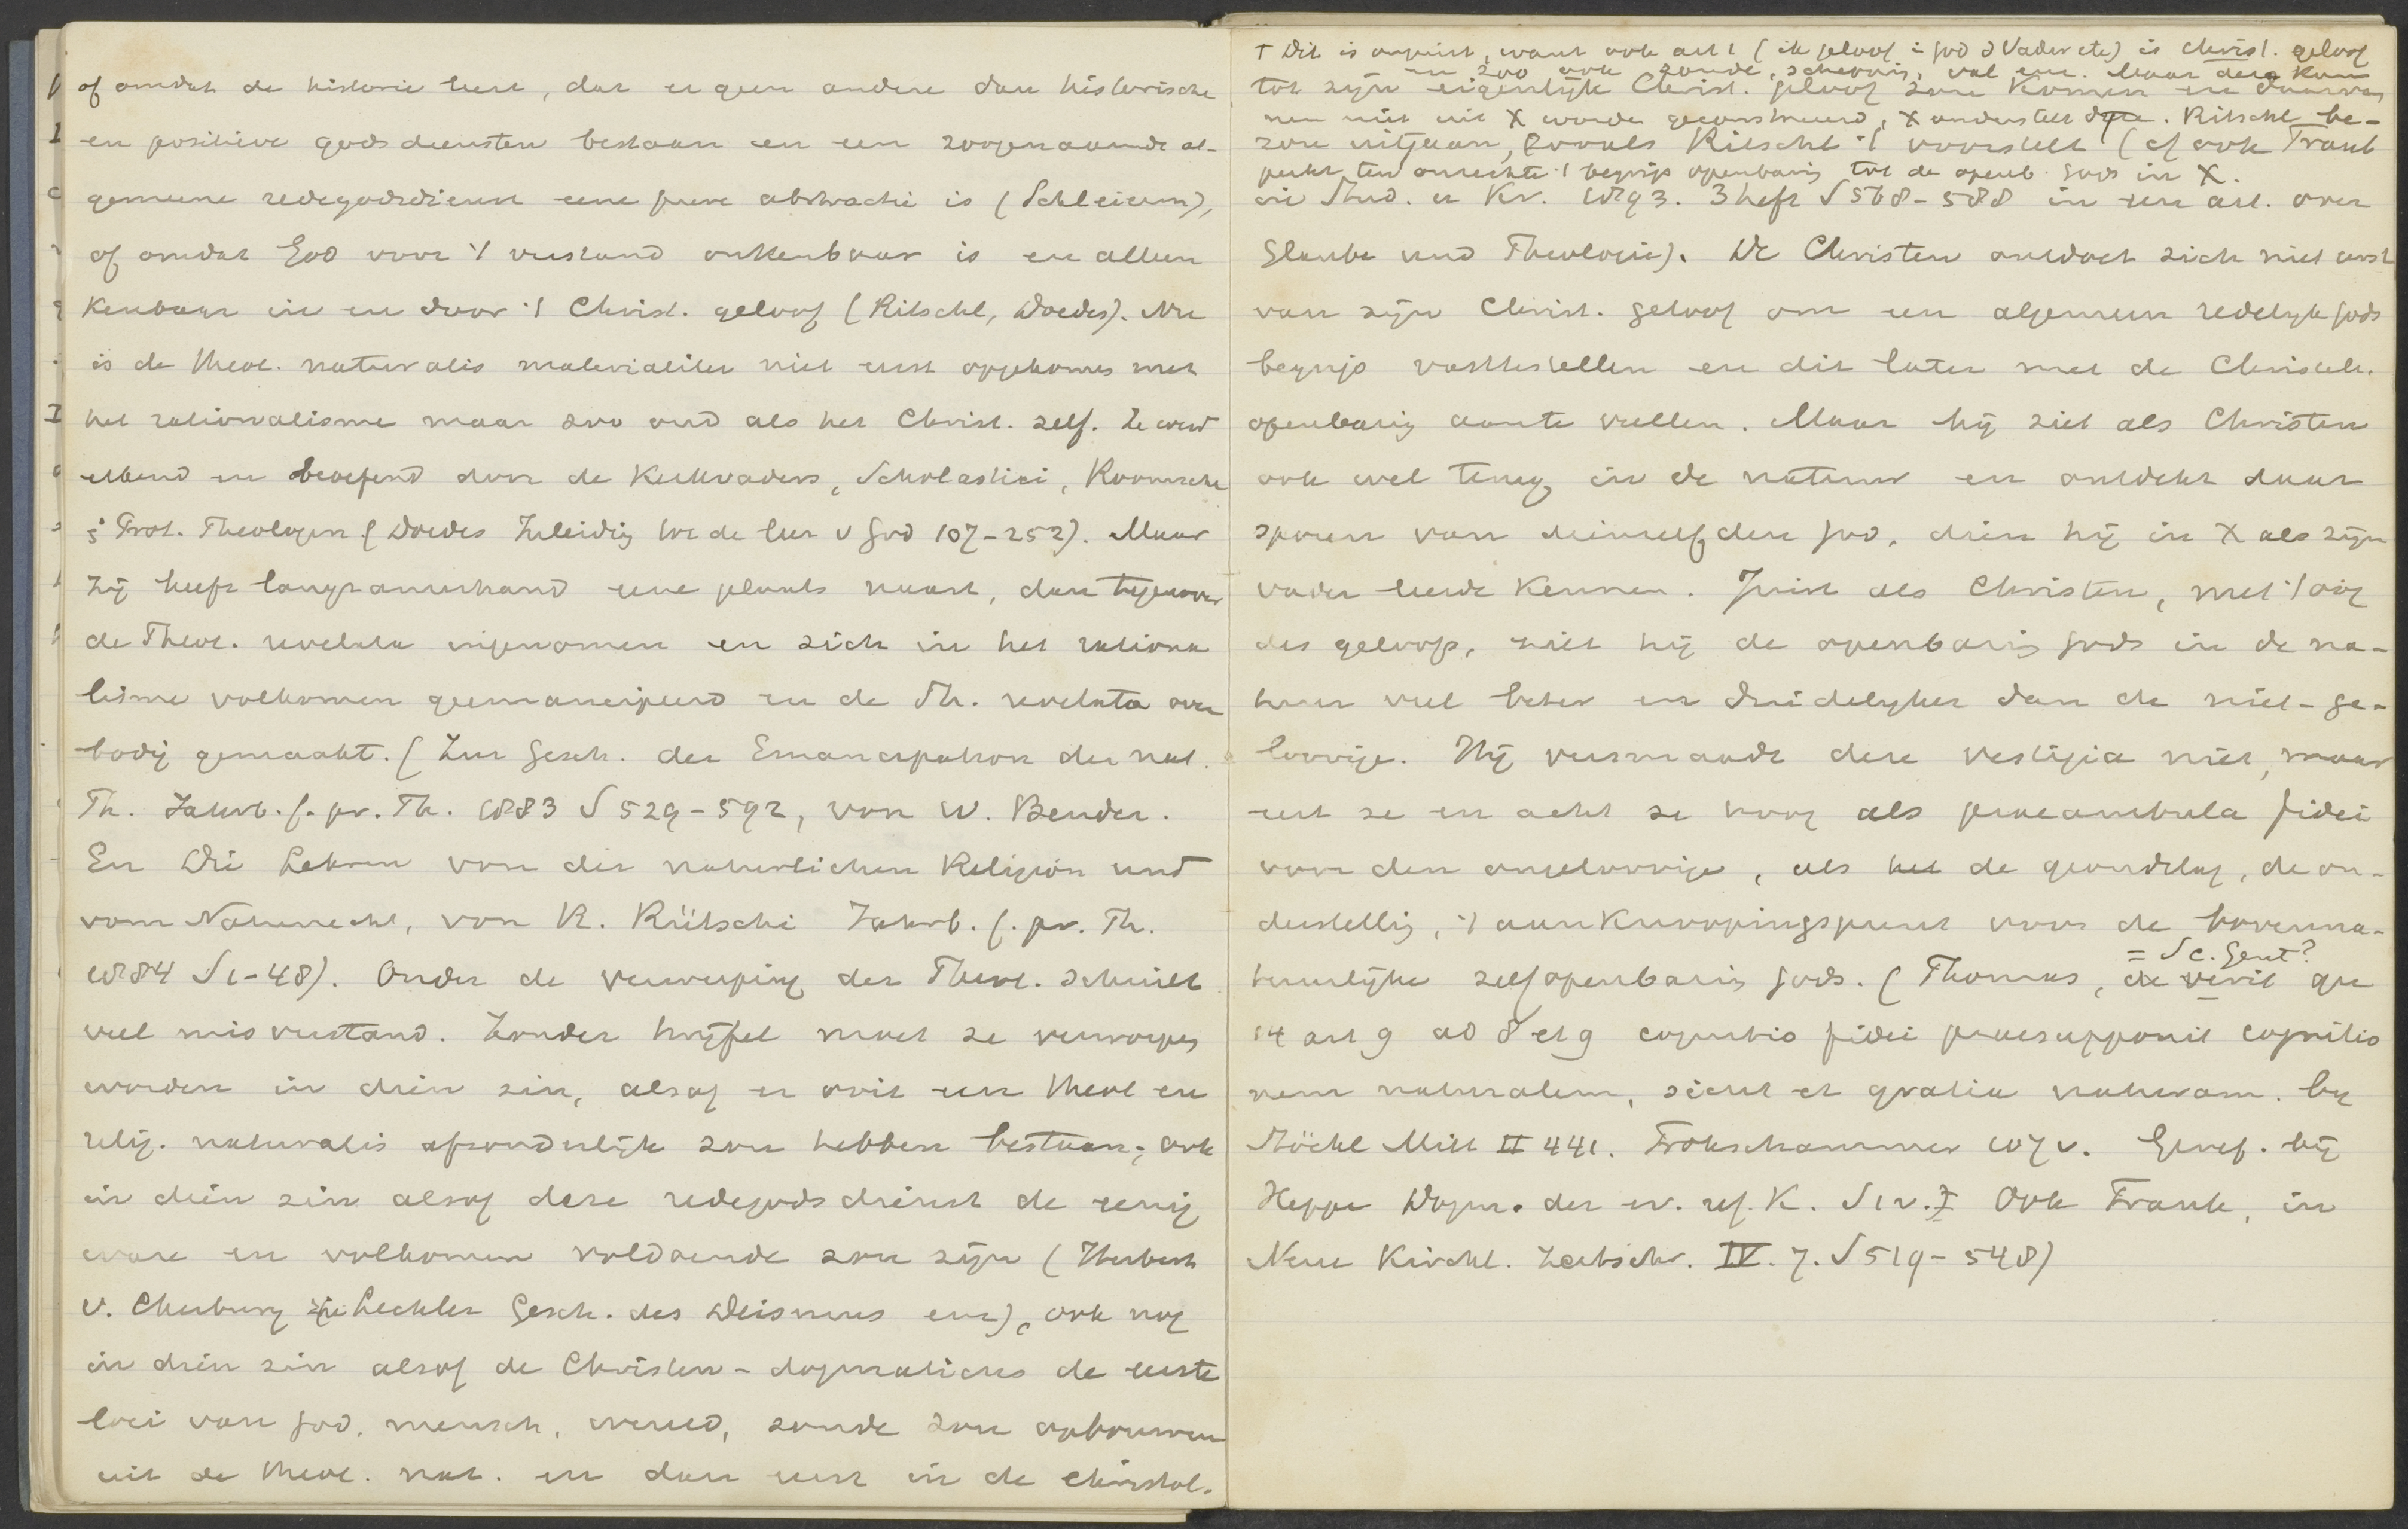 of omdat de historie leert, dat er geen andere dan historische
en positieve godsdiensten bestaan en een zoogenaamde al-
gemeene redegodsdienst eene pure abstractie is (Schleierm),
of omdat God voor 't verstand onkenbaar is en alleen
kenbaar in en door 't Christ. geloof (Ritschl, Doedes). Nu
is de theol. naturalis materialiter niet eerst opgekomen met
het rationalisme maar zoo oud als het Christ. zelf. Ze werd
erkend en beoefend door de Kerkvaders, Scholastici, Roomsche
& Prot. Theologen (Doedes Inleidig tot de leer v God 107-252). Maar
zij heeft langzamerhand eene plaats naast, dan tegenover
de Theol. revelata ingenomen en zich in het rationa
lisme volkomen geemancipeerd en de Th. revelata over
bodig gemaakt. (Zur Gesch. der Emancipation der nat.
Th. Jahrb. f. pr. Th. 1883 S 529-592, von W. Bender.
En Die Lehren von der naturlichen Religion und
vom Naturrecht, von R. Rütschi Jahrb. f. pr. Th.
1884 S 1-48). Onder de verwerping der Theol. schuilt
veel misverstand. Zonder twijfel moet ze verworpen
worden in dien zin, alsof er ooit een theol en
relig. naturalis afzonderlijk zou hebben bestaan; ook
in dien zin alsof deze redegodsdienst de eenig
ware en volkomen voldoende zou zijn (Herbert
v. Cherbury zie Lechler Gesch. des Deismus enz), ook nog
in dien zin alsof de Christen-dogmaticus de eerste
loci van God, mensch, wereld, zonde zou opbouwen
uit de theol. nat. en dan eerst in de christol.
† Dit is onjuist, want ook art 1 (ik geloof in God d Vader etc) is christ. geloof
en zoo ook zonde, schepping, val enz. Maar deze kun
tot zijn eigenlijk Christ. geloof zou komen en daarvan
nen niet uit X worden geconstrueerd, X onderstelt deze. Ritschl be-
zou uitgaan, zooals Ritschl 't voorstelt (cf ook Traub
perkt ten onrechte 't begrip openbarig tot de openb. Gods in X.
in Stud. u Kr. 1893. 3 heft S 568-588 in een art. over
Glaube und Theologie). De Christen ontdoet zich niet eerst
van zijn Christ. geloof om een algemeen redelyk gods
begrip vasttestellen en dit later met de Christel.
openbarig aante vullen. Maar hij ziet als Christen
ook wel terug in de natuur en ontdekt daar
sporen van dienzelfden God, dien hij in X als zijn
vader leerde kennen. Juist als Christen, met 't oog
des geloofs, ziet hij de openbarig Gods in de na-
tuur veel beter en duidelyker dan de niet-ge-
loovige. Hij versmaadt deze vestigia niet, maar
eert ze en acht ze hoog als praeambula fidei
voor den ongeloovige, als het de grondslag, de on-
derstellig, 't aanknoopingspunt voor de bovenna-
= S c. Gent?
tuurlijke zelfopenbarig Gods. (Thomas, de verit qu
14 art 9 ad 8 et 9 cognitio fidei praesupponit cognitio
nem naturalem, sicut et gratia naturam. by
Stöckl Mitt II 441. Frohschammer 107 v. Geref. bij
Heppe Dogm. der ev. ref. K. S 1 v. Ook Frank, in
Neue Kirchl. Zeitschr. IV. 7. S 519-548)